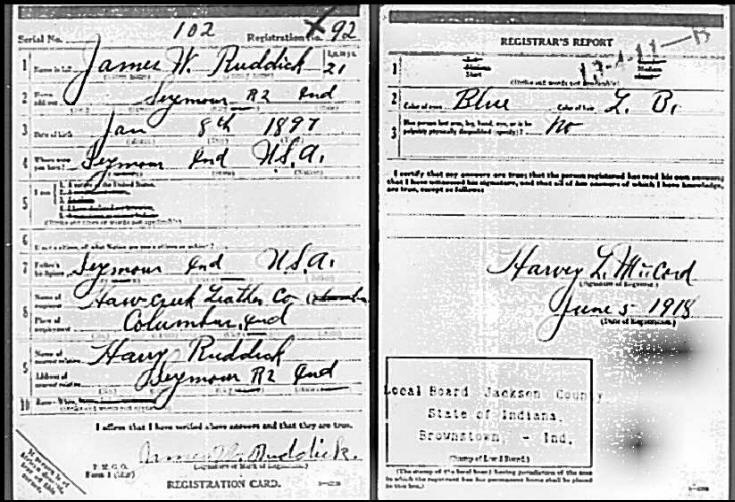 Serial No. 102 Registration No. X 92
1 James W. Ruddick 21
2 Seymour R2 Ind
3 Date of birth Jan 8th 1897
4 Where were you born? Seymour Ind U.S.A.
5 I am 1. A native of the United States.
6
7 Father's birthplace Seymour Ind U.S.A.
8 Name of employer Haw-creek Leather Co
Place of employment Columbus, Ind
9 Name of nearest relative Harry Ruddick
Address of nearest relative Seymour R2 Ind
10 Race—White,
I affirm that I have verified above answers and that they are true.
James W. Ruddick.
P. M. G. O.
Form 1
REGISTRATION CARD.
REGISTRAR'S REPORT
1
2 Color of eyes Blue Color of hair L. B.
3 No
I certify that my answers are true; that the person registered has read his own answers;
that I have witnessed his signature, and that all of his answers of which I have knowledge,
are true, except as follows:
Harvey L. McCord
(Signature of Registrar.)
June 5 - 1918
(Date of Registration.)
Local Board Jackson County
State of Indiana,
Brownstown, - Ind.
(Stamp of Local Board.)
(The stamp of the local board having jurisdiction of the area
in which the registrant has his permanent home shall be placed
in this box.)